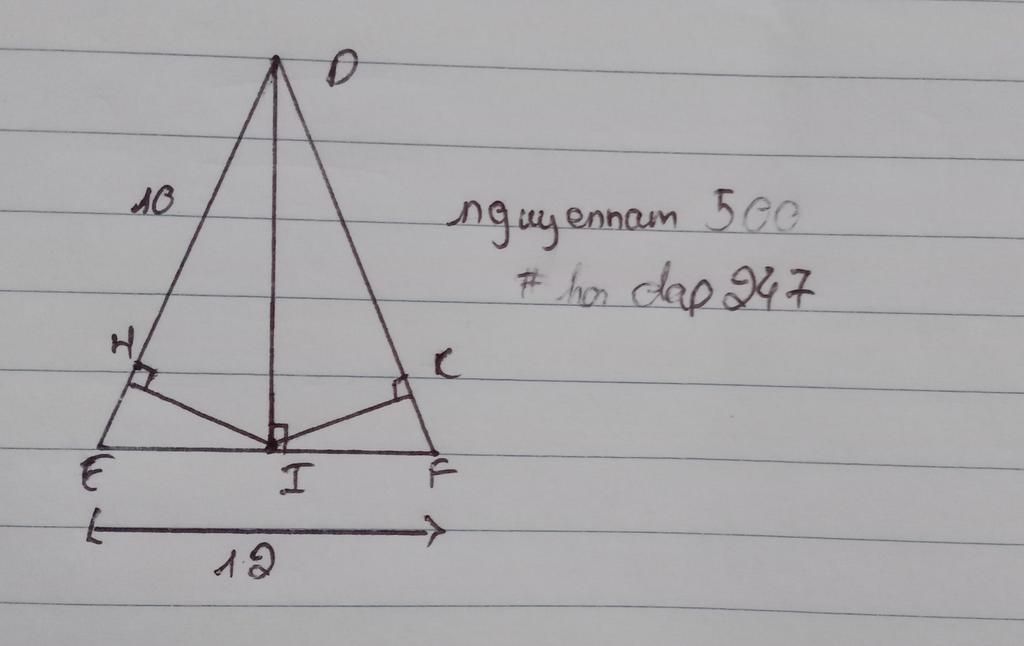 D
10
nguyennam 500
# hoi dap 247
H
K
E
I
F
12